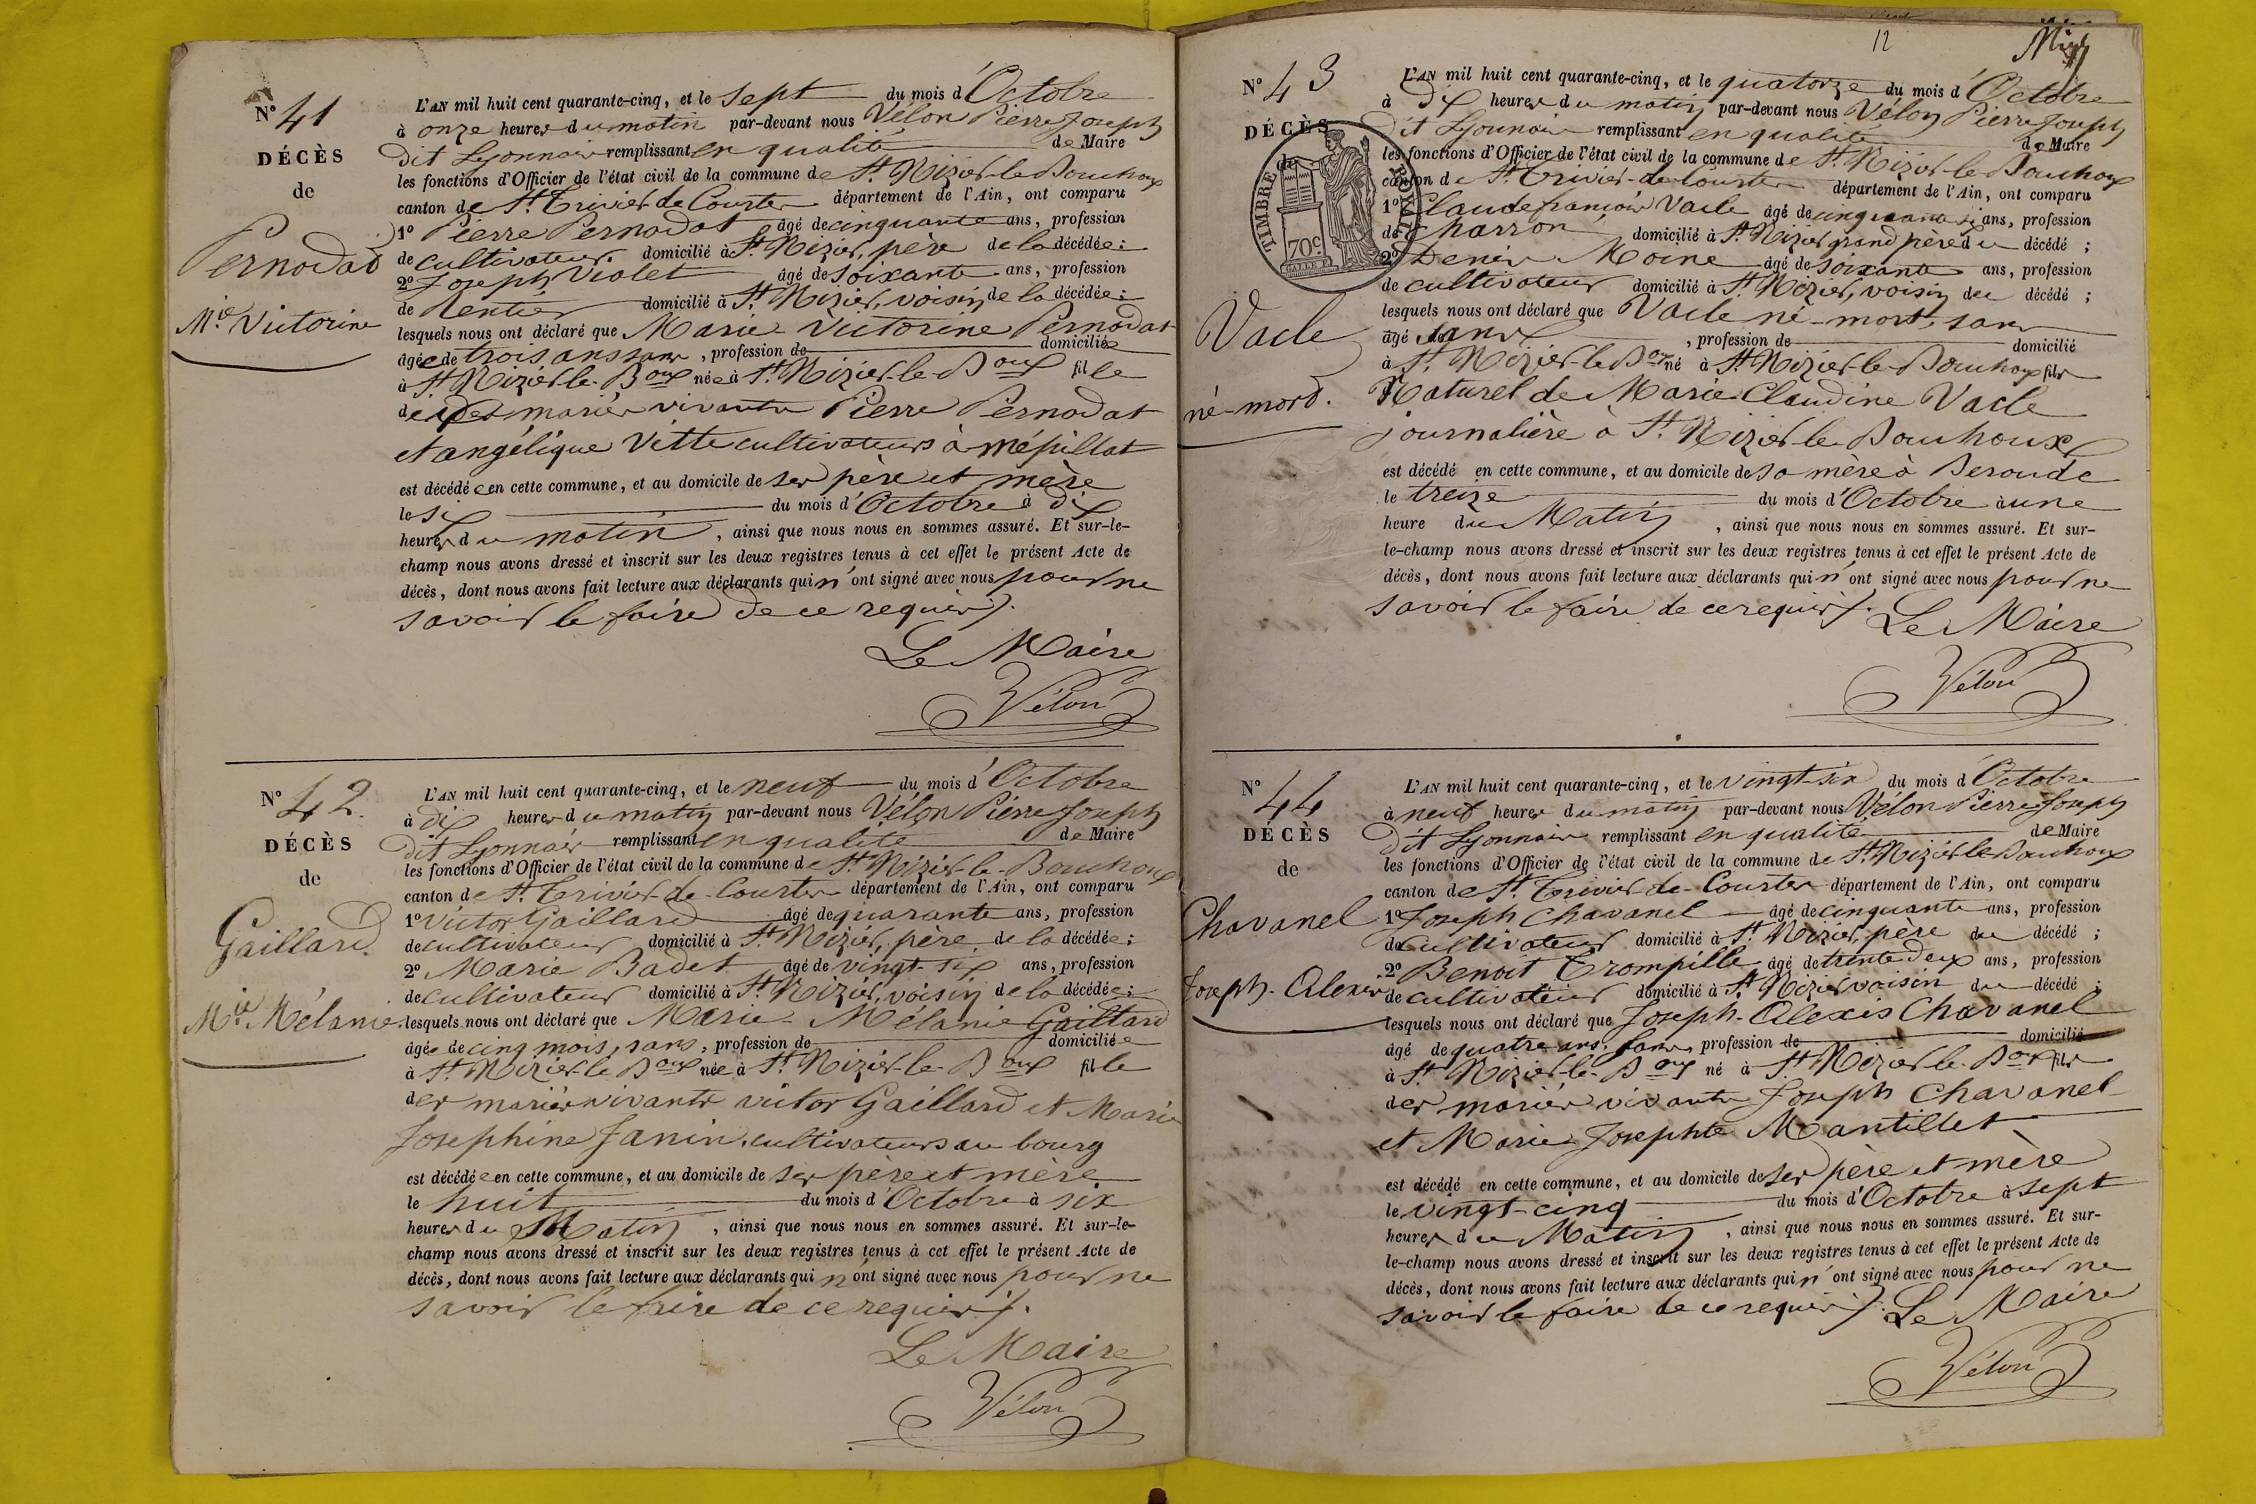 N° 41
DÉCÈS
de
Pernodat
Mie Victorine
L'AN mil huit cent quarante-cinq, et le sept du mois d'Octobre
à onze heures du matin par-devant nous Vélon Pierre Joseph
dit Lyonnais remplissant en qualité de Maire
les fonctions d'Officier de l'état civil de la commune de St. Nizier-le-Bouchoux
canton de St. Trivier de Courtes département de l'Ain, ont comparu
1° Pierre Pernodat âgé de cinquante ans, profession
de cultivateur domicilié à St. Nizier, père de la décédée;
2° Joseph Violet âgé de soixante ans, profession
de Rentier domicilié à St. Nizier, voisin de la décédée;
lesquels nous ont déclaré que Marie Victorine Pernodat
âgée de trois ans sans, profession de domiciliée
à St Nizier-le-Boux née à St. Nizier-le-Boux fille
des mariés vivants Pierre Pernodat
et angélique Vitte cultivateurs à mépillat
est décédée en cette commune, et au domicile de ses père et mère
le six du mois d'Octobre à dix
heures du matin, ainsi que nous nous en sommes assuré. Et sur-le-
champ nous avons dressé et inscrit sur les deux registres tenus à cet effet le présent Acte de
décès, dont nous avons fait lecture aux déclarants qui n'ont signé avec nous pour ne
savoir le faire de ce requis.
Le Maire
Vélon
N° 42.
DÉCÈS
de
Gaillard.
Mie Mélanie.
L'AN mil huit cent quarante-cinq, et le neuf du mois d'Octobre
à dix heures du matin par-devant nous Vélon Pierre Joseph
dit Lyonnais remplissant en qualité de Maire
les fonctions d'Officier de l'état civil de la commune de St. Nizier-le-Bouchoux
canton de St. Trivier-de-Courtes département de l'Ain, ont comparu
1° Victor Gaillard âgé de quarante ans, profession
de cultivateur domicilié à St. Nizier, père de la décédée;
2° Marie Badet âgé de vingt-six ans, profession
de cultivateur domicilié à St. Nizier, voisin de la décédée;
lesquels nous ont déclaré que Marie-Mélanie Gaillard
âgée de cinq mois, sans, profession de domiciliée
à St. Nizier-le-Boux née à St. Nizier-le-Boux fille
des mariés vivants victor Gaillard et Marie
Josephine Janin, cultivateurs au bourg
est décédée en cette commune, et au domicile de ses père et mère
le huit du mois d'Octobre à six
heures du Matin, ainsi que nous nous en sommes assuré. Et sur-le-
champ nous avons dressé et inscrit sur les deux registres tenus à cet effet le présent Acte de
décès, dont nous avons fait lecture aux déclarants qui n'ont signé avec nous pour ne
savoir le faire de ce requis.
Le Maire
Vélon
12
N° 43
DÉCÈS
de
TIMBRE ROYAL
70c
Vacle
né-mort.
L'AN mil huit cent quarante-cinq, et le quatorze du mois d'Octobre
à dix heures du matin par-devant nous Vélon Pierre Joseph
dit Lyonnais remplissant en qualité de Maire
les fonctions d'Officier de l'état civil de la commune de St. Nizier-le-Bouchoux
canton de St. Trivier-de-Courtes département de l'Ain, ont comparu
1° Claude françois Vacle âgé de cinquante six ans, profession
de Charron domicilié à St. Nizier grand père du décédé;
2° Denis Moine âgé de soixante ans, profession
de cultivateur domicilié à St. Nizier, voisin du décédé;
lesquels nous ont déclaré que Vacle né-mort, sans
âgé, profession de domicilié
à St. Nizier-le-Boux né à St. Nizier-le-Bouchoux fils
Naturel de Marie Claudine Vacle
journalière à St. Nizier-le-Bouchoux
est décédé en cette commune, et au domicile de sa mère à Beroude
le treize du mois d'Octobre à une
heure du Matin, ainsi que nous nous en sommes assuré. Et sur-
le-champ nous avons dressé et inscrit sur les deux registres tenus à cet effet le présent Acte de
décès, dont nous avons fait lecture aux déclarants qui n'ont signé avec nous pour ne
savoir le faire de ce requis. Le Maire
Vélon
N° 44
DÉCÈS
de
Chavanel
Joseph-Alexis
L'AN mil huit cent quarante-cinq, et le vingt-six du mois d'Octobre
à neuf heures du matin par-devant nous Vélon Pierre Joseph
dit Lyonnais remplissant en qualité de Maire
les fonctions d'Officier de l'état civil de la commune de St. Nizier-le-Bouchoux
canton de St. Trivier-de-Courtes département de l'Ain, ont comparu
1° Joseph Chavanel âgé de cinquante ans, profession
de cultivateur domicilié à St. Nizier, père du décédé;
2° Benoit Trompille âgé de trente deux ans, profession
de cultivateur domicilié à St. Nizier voisin du décédé;
lesquels nous ont déclaré que Joseph-Alexis Chavanel
âgé de quatre ans, sans, profession de domicilié
à St. Nizier-le-Boux né à St. Nizier-le-Boux fils
des mariés vivants Joseph Chavanel
et Marie Josephte Mantillet
est décédé en cette commune, et au domicile de ses père et mère
le vingt-cinq du mois d'Octobre à sept
heures du Matin, ainsi que nous nous en sommes assuré. Et sur-
le-champ nous avons dressé et inscrit sur les deux registres tenus à cet effet le présent Acte de
décès, dont nous avons fait lecture aux déclarants qui n'ont signé avec nous pour ne
savoir le faire de ce requis. Le Maire
Vélon